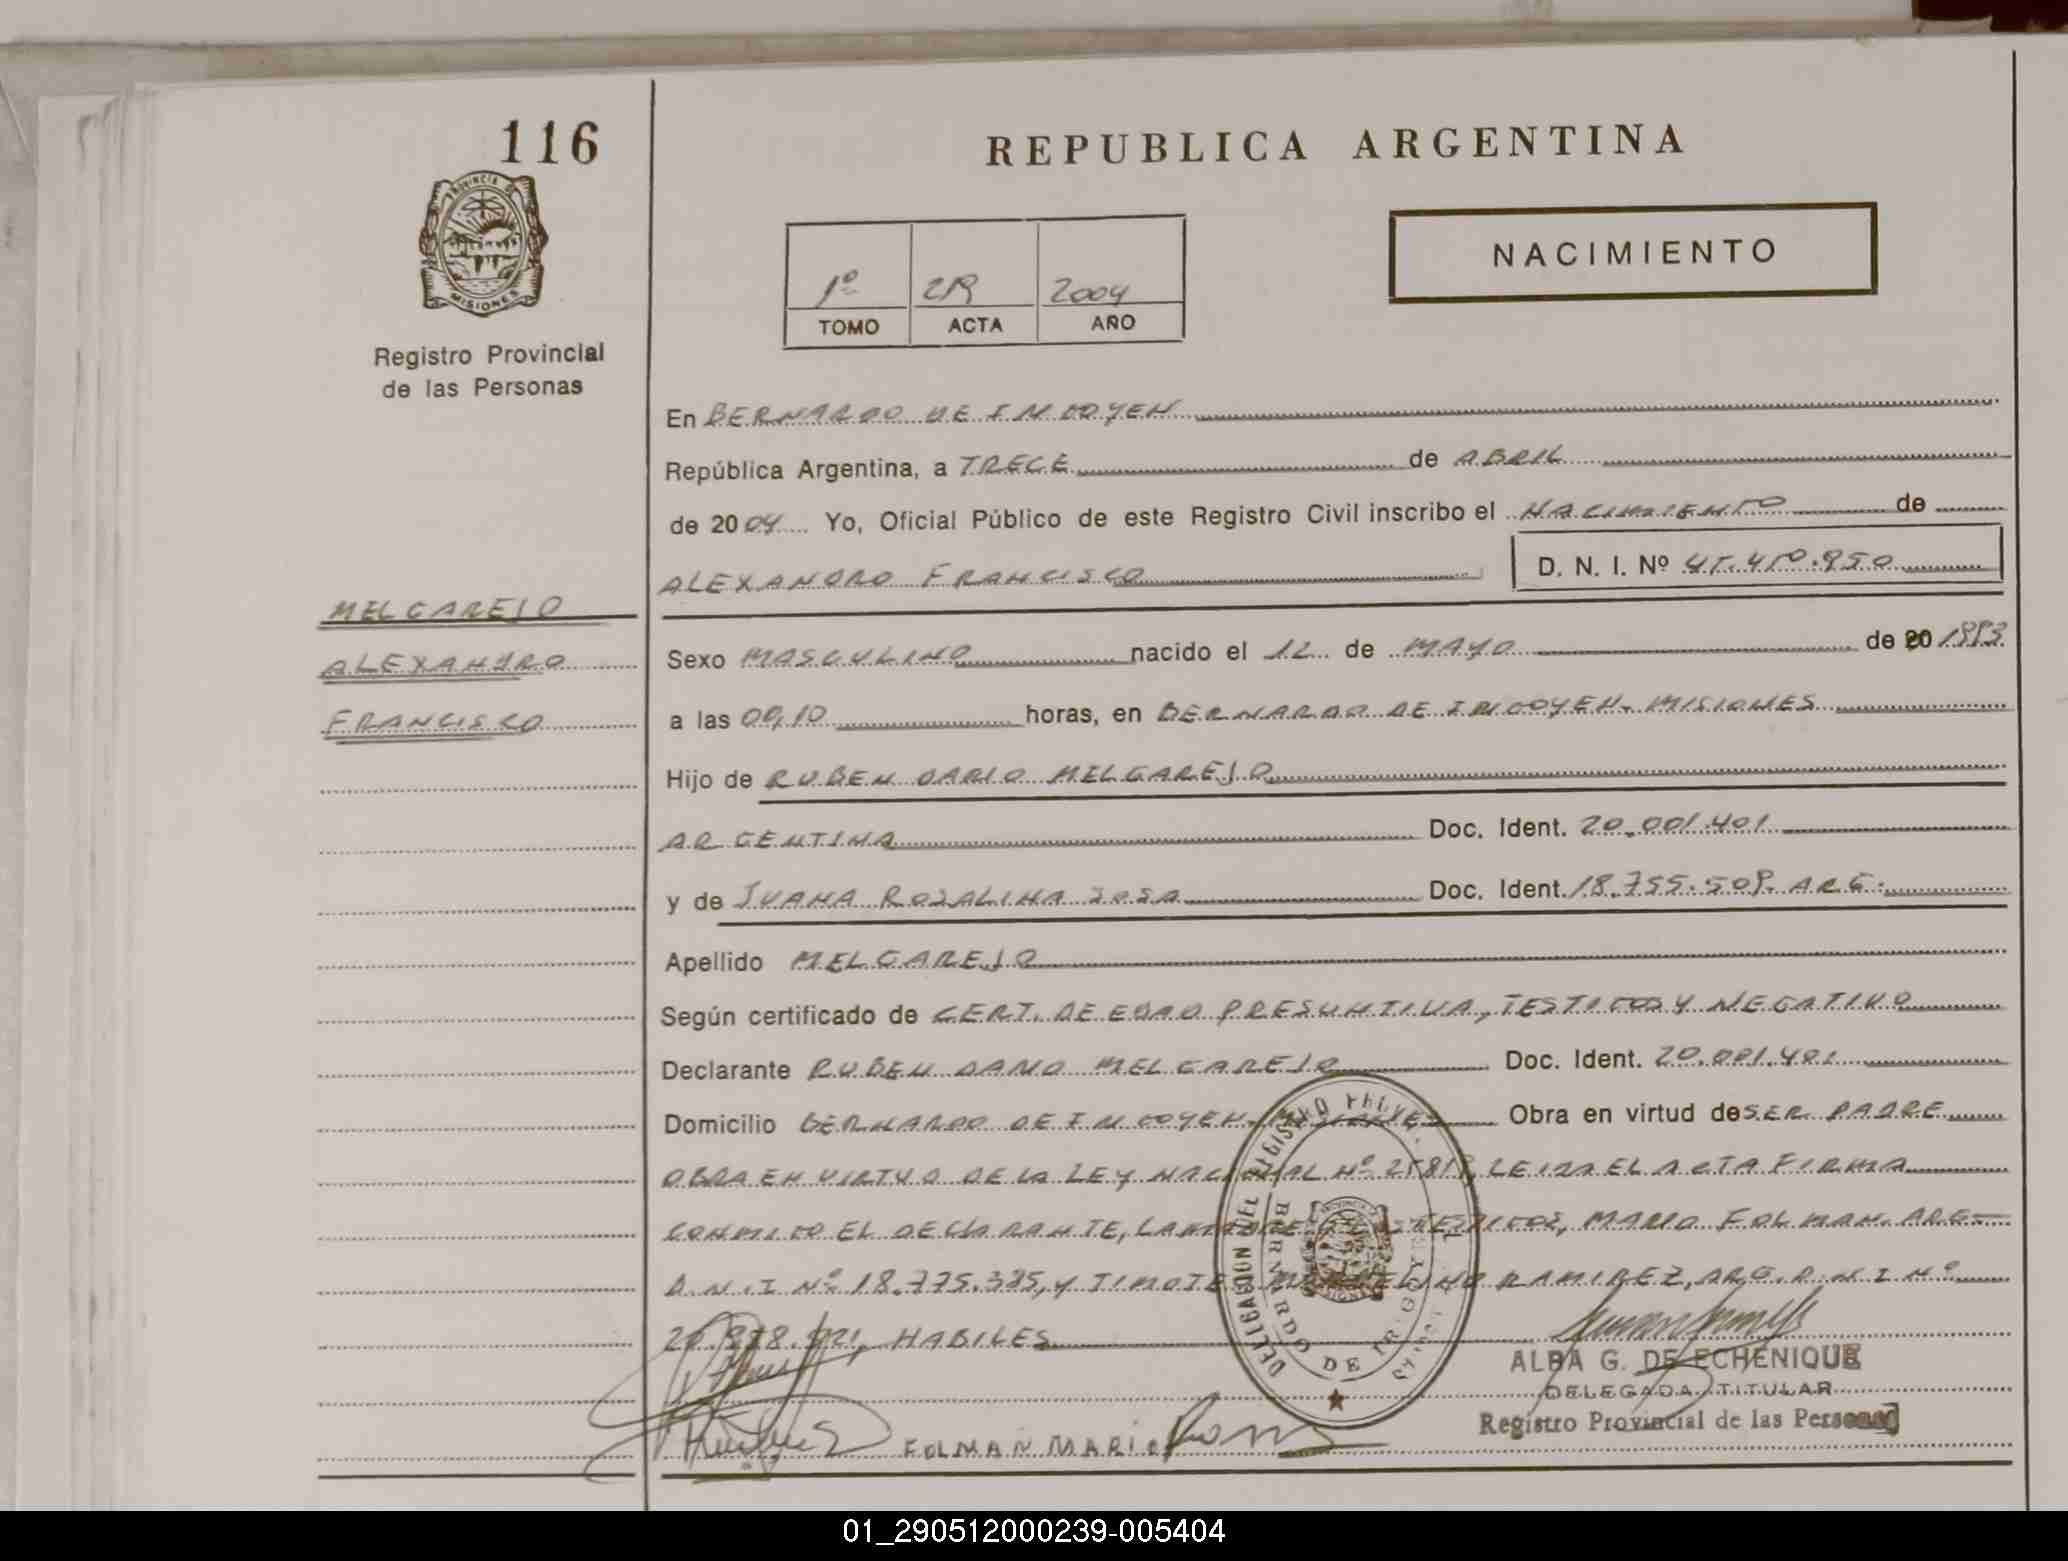 116
REPUBLICA ARGENTINA
PROVINCIA DE
MISIONES
Registro Provincial
de las Personas
NACIMIENTO
1º 2004
TOMO ACTA AÑO
En BERNARDO DE IRIGOYEN
República Argentina, a TRECE de ABRIL
de 2004 Yo, Oficial Público de este Registro Civil inscribo el NACIMIENTO de
ALEXANDRO FRANCISCO D. N. I. Nº
MELGAREJO
ALEXANDRO
FRANCISCO
Sexo MASCULINO nacido el 12 de MAYO de 20 1993
a las 00,10 horas, en BERNARDO DE IRIGOYEN. MISIONES
Hijo de RUBEN DARIO MELGAREJO
ARGENTINA Doc. Ident. 20.001.401
y de JUANA ROSALINA SOSA Doc. Ident. 18.755.509. ARG.
Apellido MELGAREJO
Según certificado de CERT. DE EDAD PRESUNTIVA, TESTIGOS Y NEGATIVO
Declarante RUBEN DARIO MELGAREJO Doc. Ident. 20.001.401
Domicilio BERNARDO DE IRIGOYEN. MISIONES Obra en virtud de SER PADRE
OBRA EN VIRTUD DE LA LEY NACIONAL Nº 25819, LEIDA EL ACTA FIRMA
CONMIGO EL DECLARANTE, LA MADRE Y LOS TESTIGOS, MARIO FOLMAN. ARG.
D.N.I Nº 18.775.375, Y TIMOTEO MARCELINO RAMIREZ, ARG. D.N I Nº
HABILES
DELEGACION DEL REGISTRO PROVINCIAL
BERNARDO DE IRIGOYEN
ALBA G. DE ECHENIQUE
DELEGADA TITULAR
Registro Provincial de las Personas
FOLMAN MARIO
01_290512000239-005404